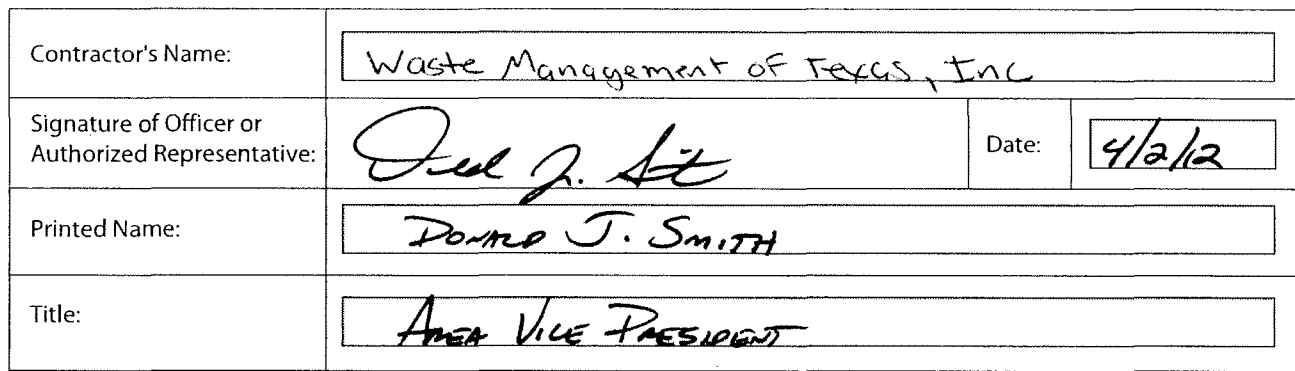 Contractor's Name: Waste Management of Texas, Inc
Signature of Officer or
Authorized Representative: Date: 4/2/12
Printed Name: Donald J. Smith
Title: Area Vice President